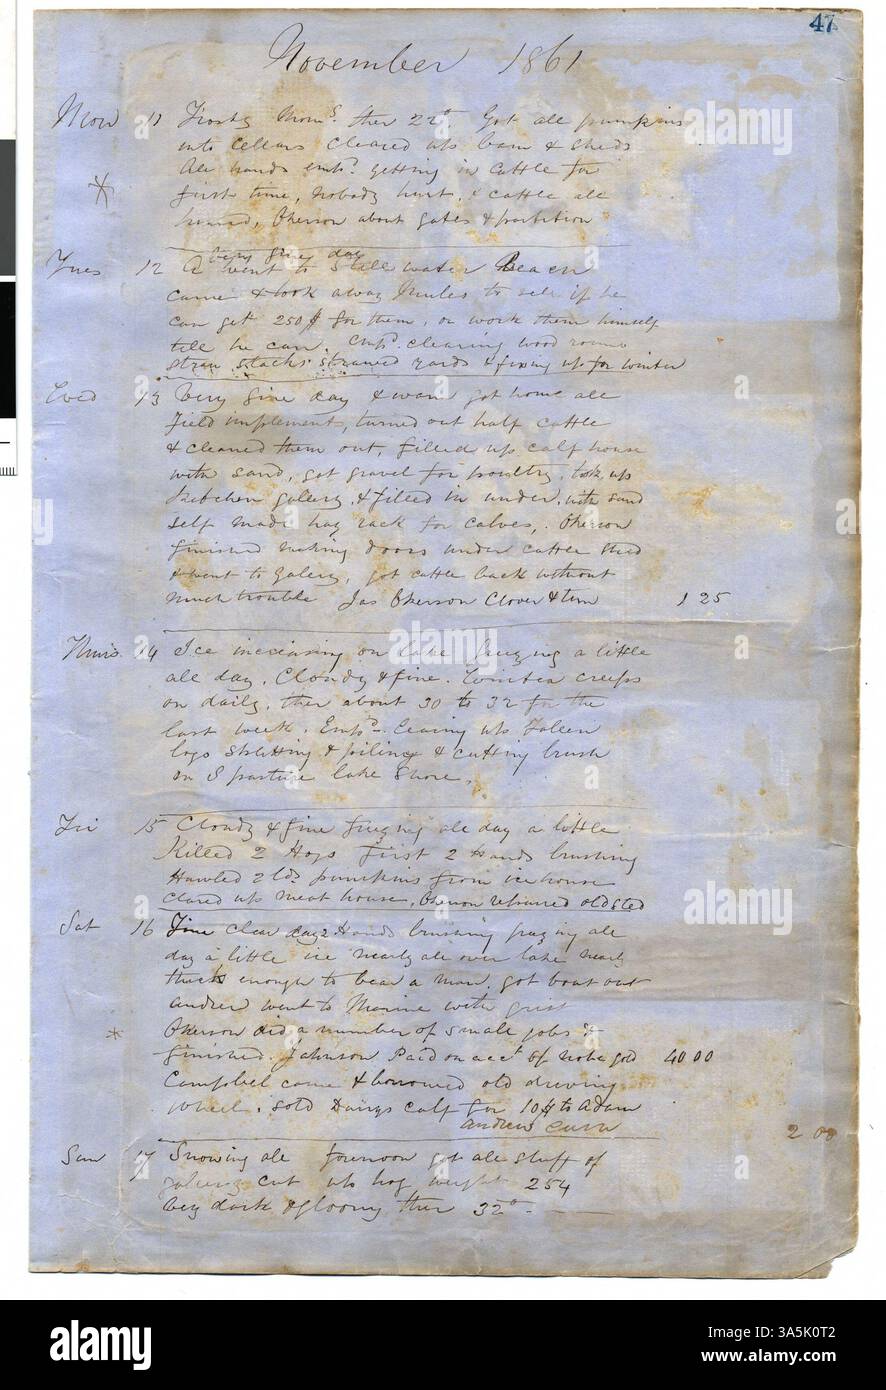 47
November 1861
Mon 11 Frosty Morng. ther 22° Got all pumpkins
into Cellars cleared up barn & sheds
All hands empd. getting in Cattle for
first time, Nobody hurt, & cattle all
Okerson about gates & partition
very fine day
Tues 12 A went to Still water Beach
came & took away Mules to see if he
can get 250$ for them, or work them himself
till he can. Empd. clearing wood round
straw stacks strawed yards & fixing up for winter
Wed 13 Very fine day & warm got home all
field implements, turned out half cattle
& cleaned them out, filled up calf house
with sand, got gravel for poultry, took up
kitchen galery & filled in under, with sand
self made hay rack for calves, Okerson
finished making doors under cattle shed
& went to galery, got cattle back without
much trouble Jas Okerson Clover & tim 1 25
Thurs. 14 Ice increasing on lake freezing a little
all day, Cloudy & fine. Winter creeps
on daily, ther about 30 to 32 for the
last week. Empd. clearing up fallen
logs splitting & pileing & cutting brush
on S pasture lake shore,
Fri 15 Cloudy & fine freezing all day a little
Killed 2 Hogs first 2 Hands brushing
Hawled 2 lds pumpkins from ice house
cleared up meat house, Okerson repaired old sled
Sat 16 Fine clear day 2 Hands brushing freezing all
day a little ice nearly all over lake nearly
thick enough to bear a man, got boat out
Andrew went to Marine with grist
Okerson did a number of small jobs &
finished. Johnson Paid on acct of note gold 40 00
Campbel came & borrowed old driving
wheel, sold Daisys calf for 10$ to Adam
Andrew Curn 2 00
Sun 17 Snowing all forenoon got all stuff of
galery cut up hog weight 254
very dark & gloomy ther 32°
alamy
alamy
Image ID: 3A5K0T2
www.alamy.com